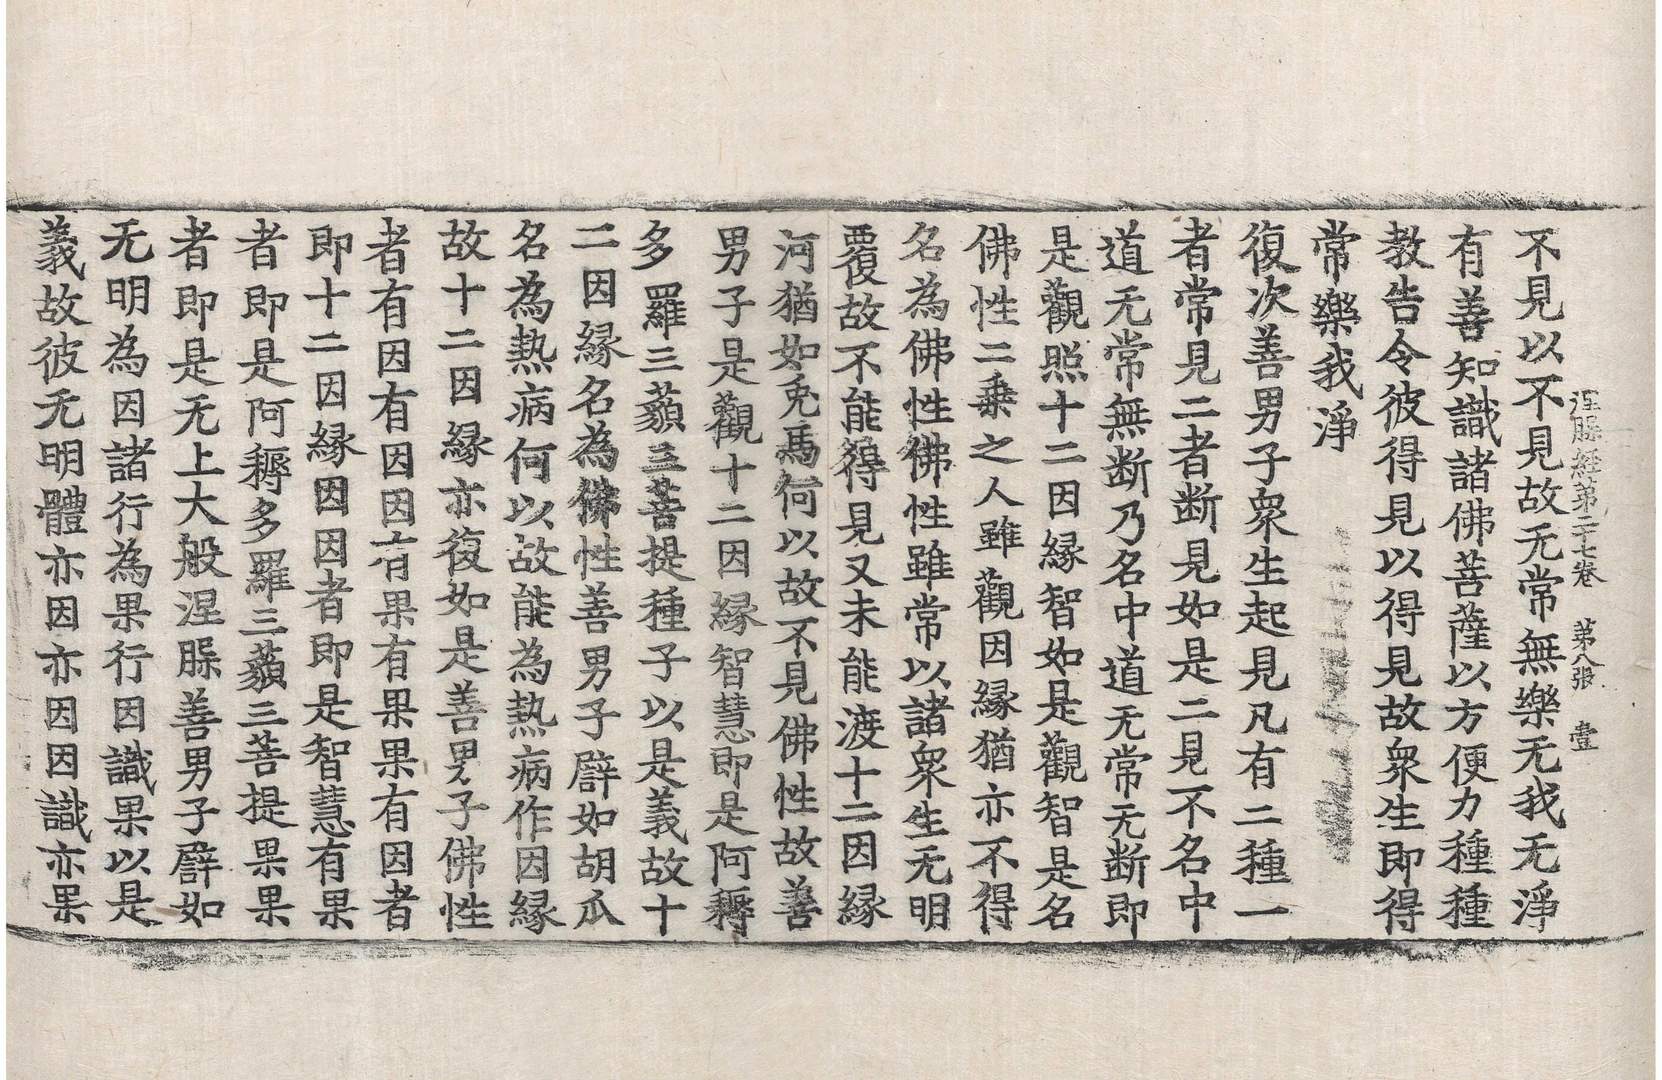 涅槃経第二十七卷　第八張　壹
不見以不見故无常無樂无我无淨
有善知識諸佛菩薩以方便力種種
教告令彼得見以得見故衆生即得
常樂我淨
復次善男子衆生起見凡有二種一
者常見二者断見如是二見不名中
道无常無断乃名中道无常无断即
是觀照十二因縁智如是觀智是名
佛性二乗之人雖觀因縁猶亦不得
名為佛性佛性雖常以諸衆生无明
覆故不能得見又未能渡十二因縁
河猶如兎馬何以故不見佛性故善
男子是觀十二因縁智慧即是阿耨
多羅三藐三菩提種子以是義故十
二因縁名為佛性善男子譬如胡瓜
名為熱病何以故能為熱病作因縁
故十二因縁亦復如是善男子佛性
者有因有因因有果有果果有因者
即十二因縁因因者即是智慧有果
者即是阿耨多羅三藐三菩提果果
者即是无上大般涅槃善男子譬如
无明為因諸行為果行因識果以是
義故彼无明體亦因亦因因識亦果